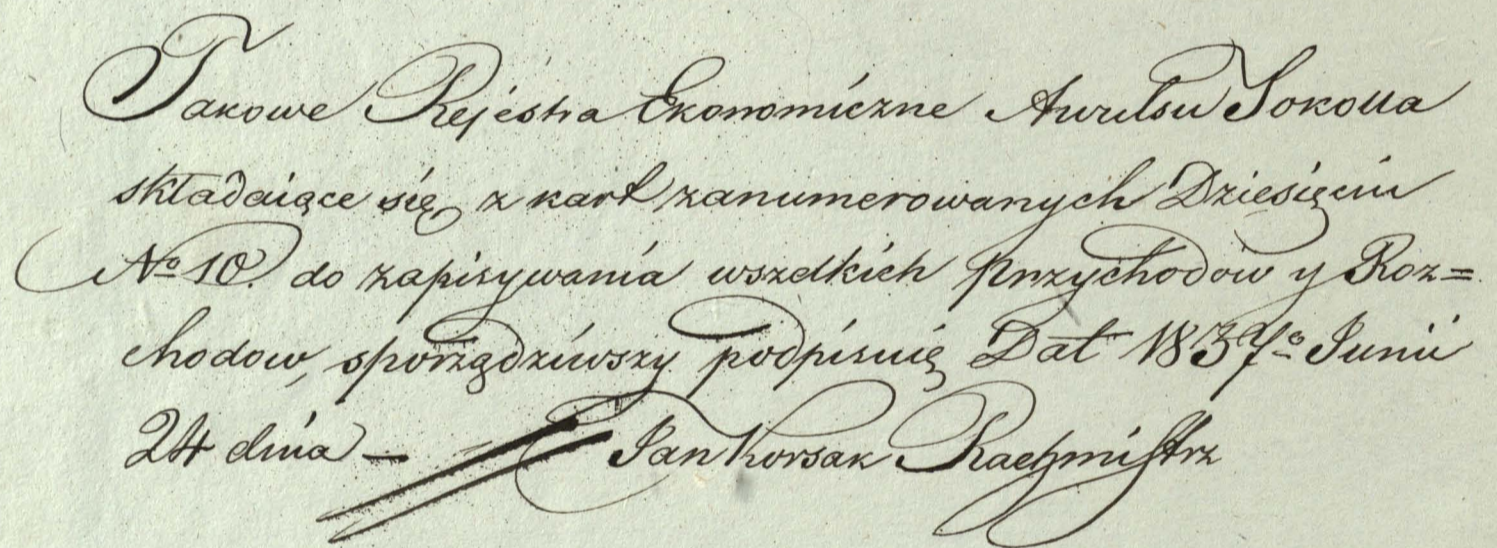 Takowe Rejestra Ekonomiczne Awulsu Sokolla
składaiące się z kart zanumerowanych Dziesięciu
No 10. do zapisywania wszelkich przychodów y Roz=
chodow, sporządziwszy podpisuię Dat 1837go Junii
24 dnia — Jan Korsak Rachmistrz